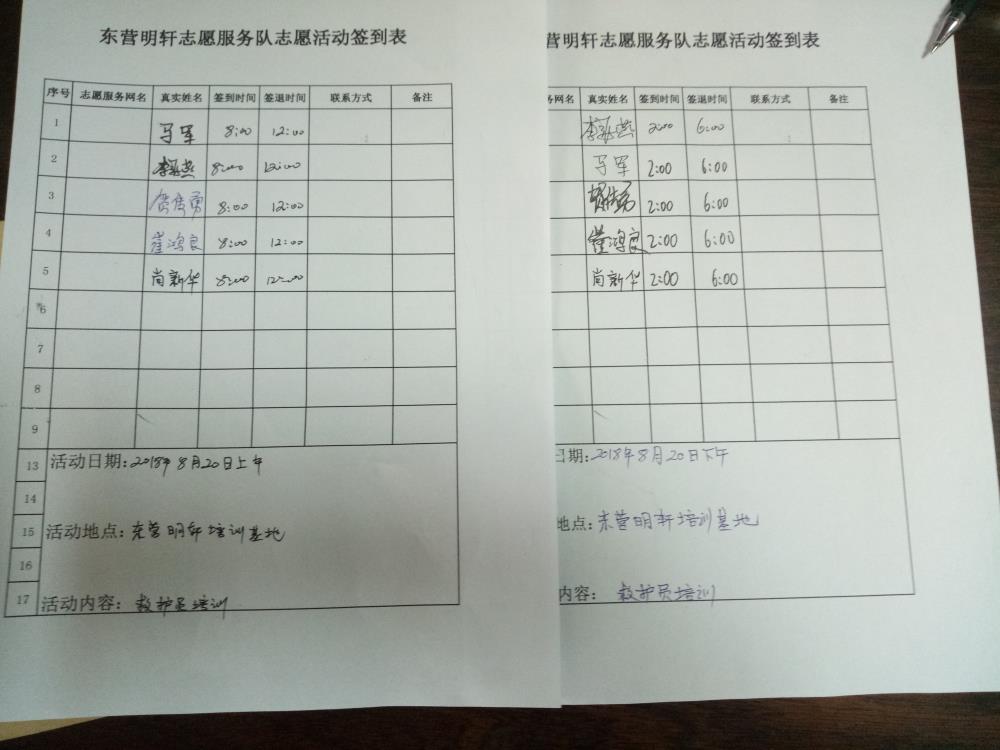 东营明轩志愿服务队志愿活动签到表
序号 志愿服务网名 真实姓名 签到时间 签退时间 联系方式 备注
1 马军 8:00 12:00
2 8:00 12:00
3 8:00 12:00
4 崔鸿良 8:00 12:00
5 尚新华 8:00 12:00
6
7
8
9
13 活动日期:2018年8月20日上午
14
15 活动地点:东营明轩培训基地
16
17 活动内容:救护员培训
营明轩志愿服务队志愿活动签到表
务网名 真实姓名 签到时间 签退时间 联系方式 备注
2:00 6:00
马军 2:00 6:00
2:00 6:00
崔鸿良 2:00 6:00
尚新华 2:00 6:00
日期:2018年8月20日下午
地点:东营明轩培训基地
内容:救护员培训